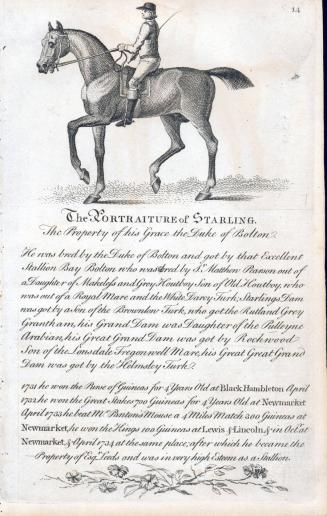 14
The PORTRAITURE of STARLING.
The Property of his Grace the Duke of Bolton
He was bred by the Duke of Bolton and got by that Excellent
Stallion Bay Bolton, who was bred by Sr. Matthew Pearson out of
a Daughter of Makeless and Grey Hautboy Son of Old Hautboy, who
was out of a Royal Mare and the White Darcy Turk, Starlings Dam
was got by a Son of the Brownlow Turk, who got the Rutland Grey
Grantham, his Grand Dam was Daughter of the Pulleyne
Arabian, his Great Grand Dam was got by Rockwood
Son of the Lonsdale Tregonwell Mare, his Great Great Grand
Dam was got by the Helmsley Turk.
1731 he won the Purse of Guineas for 4 Years Old at Black Hambleton April
1732 he won the Great Stakes 790 Guineas for 4 Years Old at Newmarket
April 1733 he beat Mr. Panton's Mouse a 4 Miles Match 300 Guineas at
Newmarket, he won the Kings 100 Guineas at Lewis & Lincoln, & in Octr. at
Newmarket, & April 1734 at the same place; after which he became the
Property of Esqr. Leeds and was in very high Esteem as a Stallion.